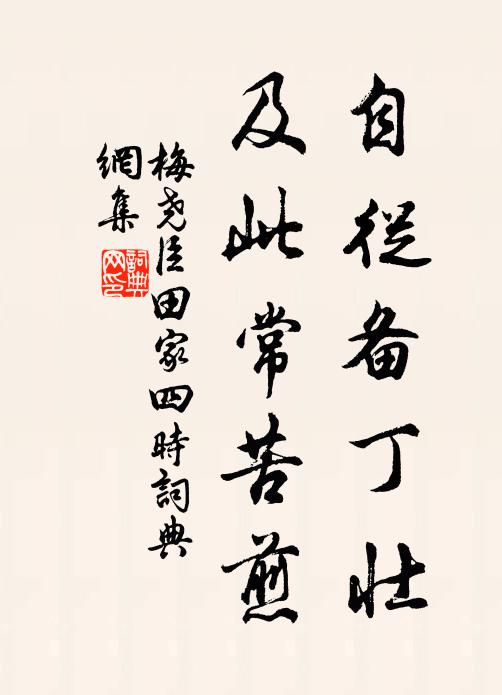 自從备丁壮
及此常苦煎
梅尧臣田家四時詞典
網集
詞典
网印